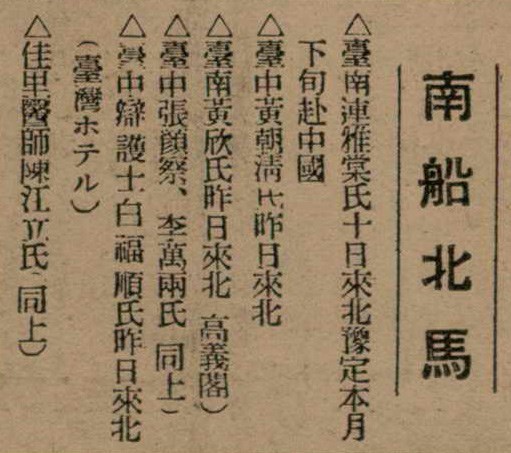 南船北馬
△臺南連雅棠氏十日來北豫定本月
下旬赴中國
△臺中黃朝淸氏昨日來北
△臺南黃欣氏昨日來北 高義閣)
△臺中張顏祭、李萬兩氏 同上)
△臺中辯護士白福順氏昨日來北
(臺灣ホテル)
△佳里醫師陳江立氏(同上)